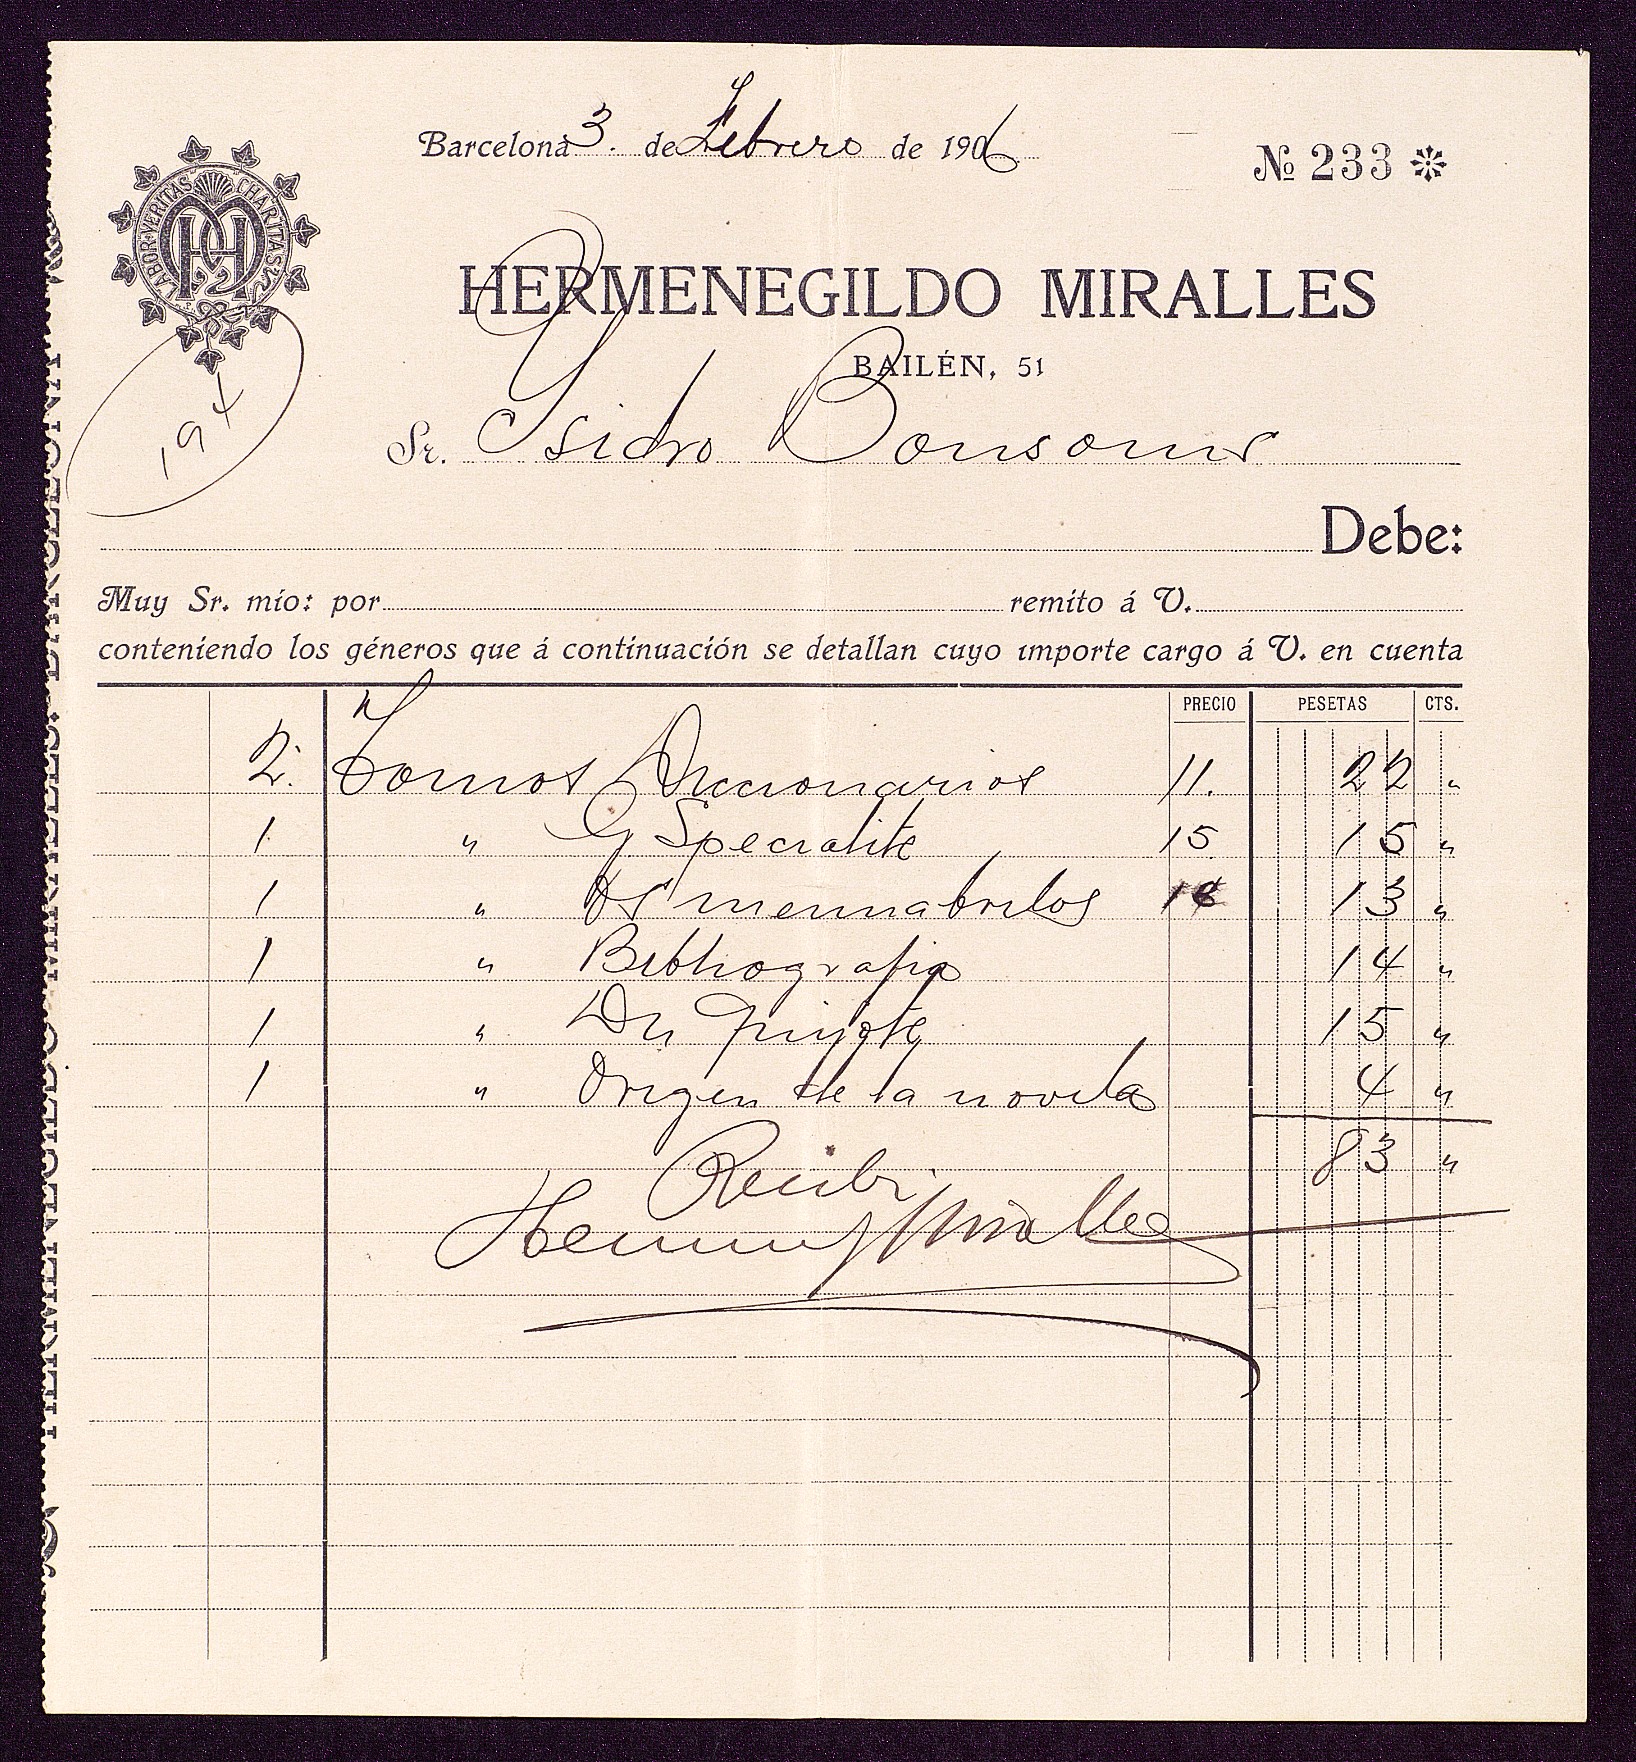 Barcelona 3. de Febrero de 1906
Nº 233
LABOR·VERITAS CHARITAS
HM
194
HERMENEGILDO MIRALLES
BAILÉN, 51
Sr. Ysidro Bonsoms
Debe:
Muy Sr. mío: por remito á V.
conteniendo los géneros que á continuación se detallan cuyo importe cargo á V. en cuenta
PRECIO PESETAS CTS.
2. Tomos Diccionarios 11. 22 "
1 " Specialite 15 15 "
1 " 13 "
1 " Bibliografia 14 "
1 " Dn Quijote 15 "
1 " Origen de la novela 4 "
83 "
Recibi
Hermeng Miralles